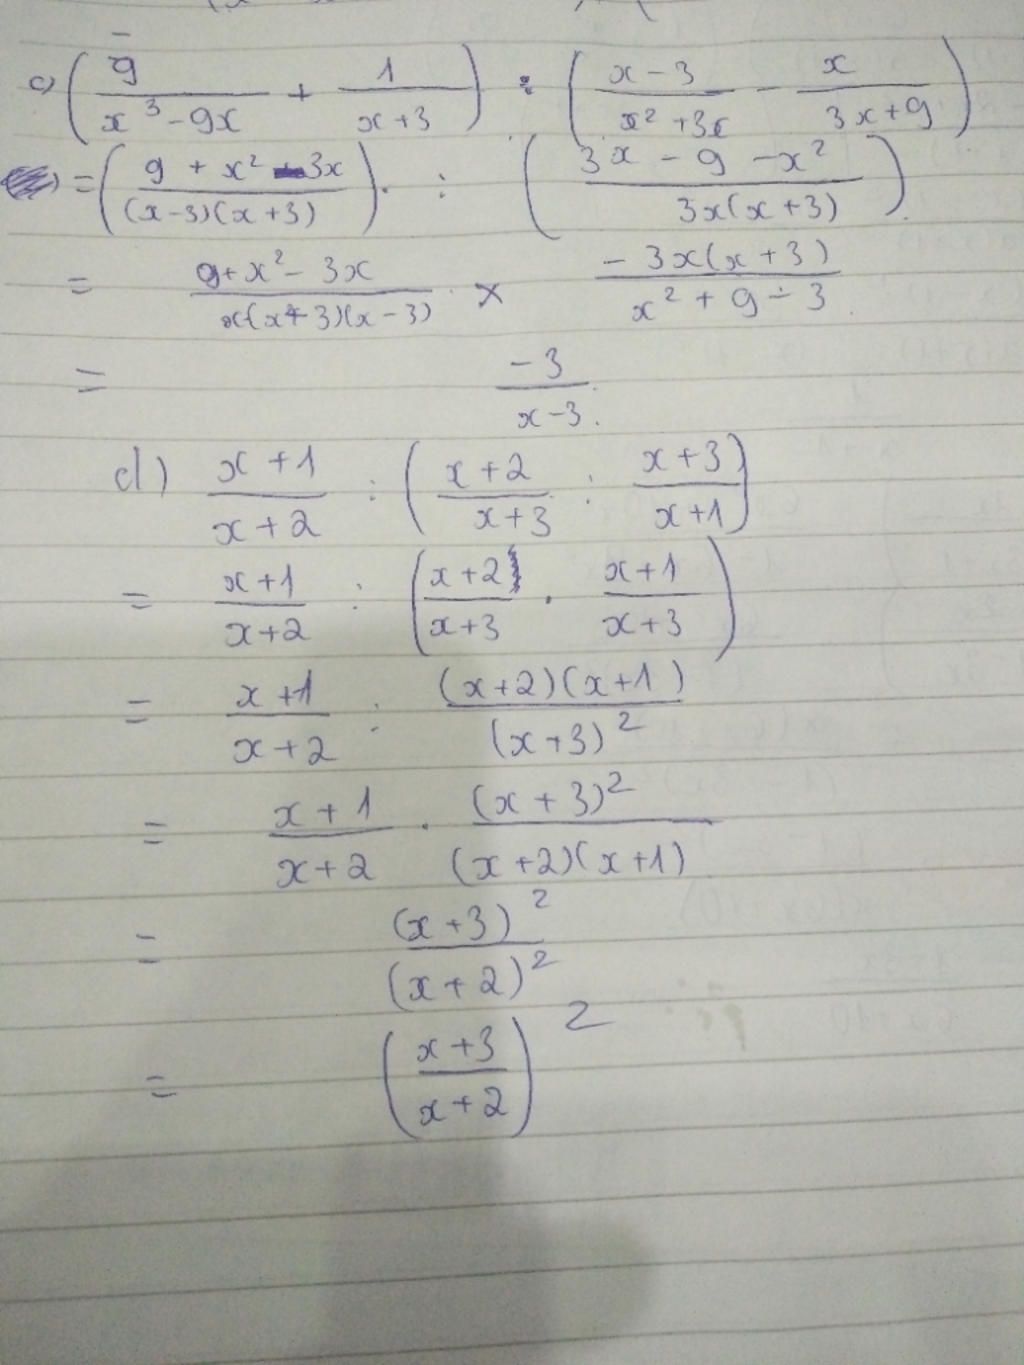 c) (9/(x³-9x) + 1/(x+3)) : ((x-3)/(x²+3x) - x/(3x+9))
= ((9 + x² - 3x)/((x-3)(x+3))) . : ((3x - 9 - x²)/(3x(x+3)))
= (9+x²-3x)/(x(x+3)(x-3)) × (-3x(x+3))/(x²+9-3)
= -3/(x-3).
d) (x+1)/(x+2) : ((x+2)/(x+3) : (x+3)/(x+1))
= (x+1)/(x+2) : ((x+2)/(x+3) . (x+1)/(x+3))
= (x+1)/(x+2) : ((x+2)(x+1))/(x+3)²
= (x+1)/(x+2) . (x+3)²/((x+2)(x+1))
= (x+3)²/(x+2)²
= ((x+3)/(x+2))²